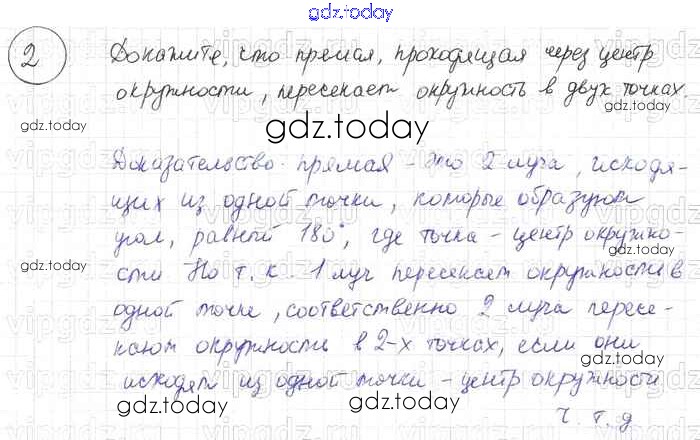 gdz.today
2 Докажите, что прямая, проходящая через центр
окружности, пересекает окружность в двух точках.
gdz.today
gdz.today
Доказательство прямая - это 2 луча, исходя-
щих из одной точки, которые образуют
угол, равный 180°, где точка - центр окружно-
сти Но т. к. 1 луч пересекает окружности в
gdz.today
gdz.today
одной точке, соответственно 2 луча пересе-
кают окружность в 2-х точках, если они
gdz.today
исходят из одной точки - центр окружности
gdz.today
gdz.today
Ч. т. д